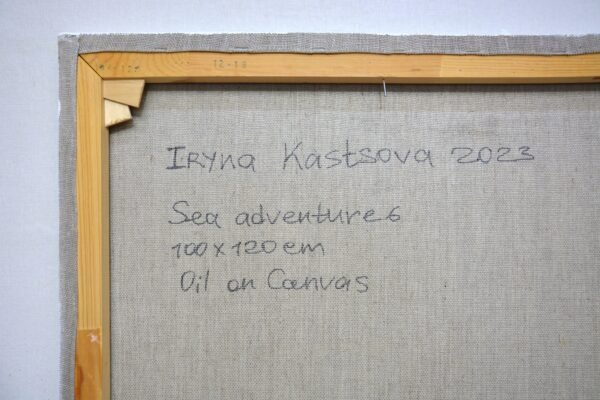 12-18
Iryna Kastsova 2023
Sea adventure 6
100x120 cm
Oil on Canvas